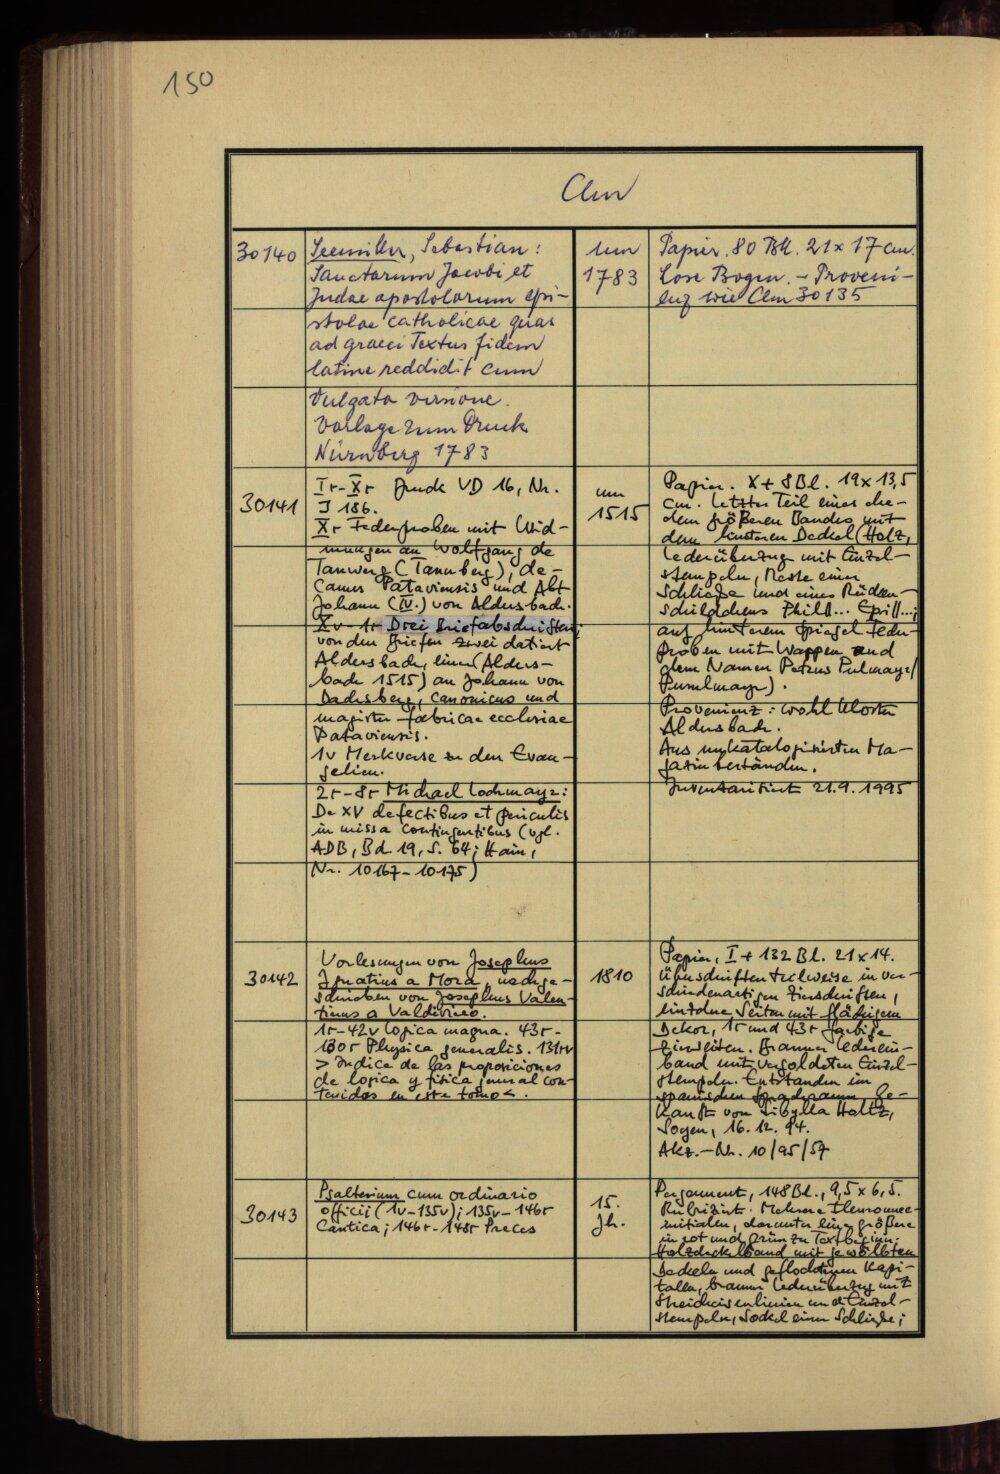 150
Clm
30140
Seemiller, Sebastian:
Sanctorum Jacobi et
Judae apostolorum epi-
stolae catholicae quas
ad graeci Textus fidem
latine reddidit cum
Vulgata versione.
Vorlage zum Druck
Nürnberg 1783
um
1783
Papier. 80 Bll. 21 x 17 cm.
Lose Bogen. - Proveni-
enz wie Clm 30135
30141
Ir-Xr Druck VD 16, Nr.
J 186.
Xr Federproben mit Wid-
mungen an Wolfgang de
Tanwerg (Tannberg), de-
canus Pataviensis und Abt
Johann (IV.) von Aldersbach.
Xv-1r Drei Briefabschriften;
von den Briefen zwei datiert
Aldersbach, einer (Alders-
bach 1515) an Johann von
Dachsberg, canonicus und
magister fabricae ecclesiae
Pataviensis.
1v Merkverse zu den Evan-
gelien.
2r-8r Michael Lochmayr:
De XV defectibus et periculis
in missa contingentibus (vgl.
ADB, Bd. 19, S. 64; Hain,
Nr. 10167-10175)
um
1515
Papier. X + 8 Bl. 19 x 13,5
cm. Letzter Teil eines ehe-
dem größeren Bandes mit
dem hinteren Deckel (Holz,
Lederüberzug mit Einzel-
stempeln, Reste einer
Schließe und eines Rücken-
schildchens Phill... Epist...;
auf hinterem Spiegel Feder-
proben mit Wappen und
dem Namen Petrus
Provenienz: wohl Kloster
Aldersbach.
Aus unkatalogisierten Ma-
gazinbeständen.
Inventarisiert 21.9.1995
30142
Vorlesungen von Josephus
Ignatius a Mora, nachge-
schrieben von Josephus Valen-
tinus a Valdivieso.
1r-42v Logica magna. 43r-
130r Physica generalis. 131rv
> Indice de las proposiciones
de logica y fisica general con-
tenidas en este tomo <.
1810
Papier, I + 132 Bl. 21 x 14.
Überschriften teilweise in ver-
schiedenartigen Zierschriften,
einzelne Seiten mit flächigem
Dekor, 1r und 43r farbige
Zierseiten. Brauner Lederein-
band mit vergoldeten Einzel-
stempeln. Entstanden im
spanischen Sprachraum. Ge-
kauft von Sibylla Holtz,
Soyen, 16.12.94.
Akz.-Nr. 10/95/57
30143
Psalterium cum ordinario
officii (1v-135v); 135v-146r
Cantica; 146r-148r Preces
15.
Jh.
Pergament, 148 Bl., 9,5 x 6,5.
Rubriziert. Mehrere Fleuronnee-
initialen, darunter eine größere
in rot und grün zu Textbeginn.
Holzdeckelband mit gewölbten
Deckeln und geflochtenen Kapi-
talen, brauner Lederüberzug mit
Streicheisenlinien und Einzel-
stempeln, Sockel einer Schließe;